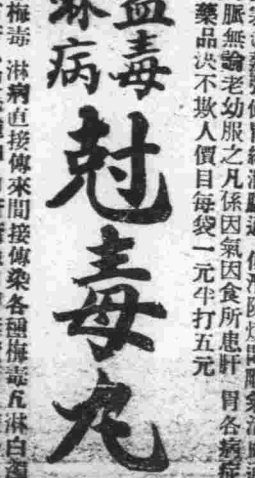 脈無論老幼服之凡係因氣因食所患肝 胃各病症
藥品決不欺人價目每袋一元半打五元
血毒
淋病
尅毒丸
梅毒 淋病直接傳來間接傳染各種梅毒五淋白濁